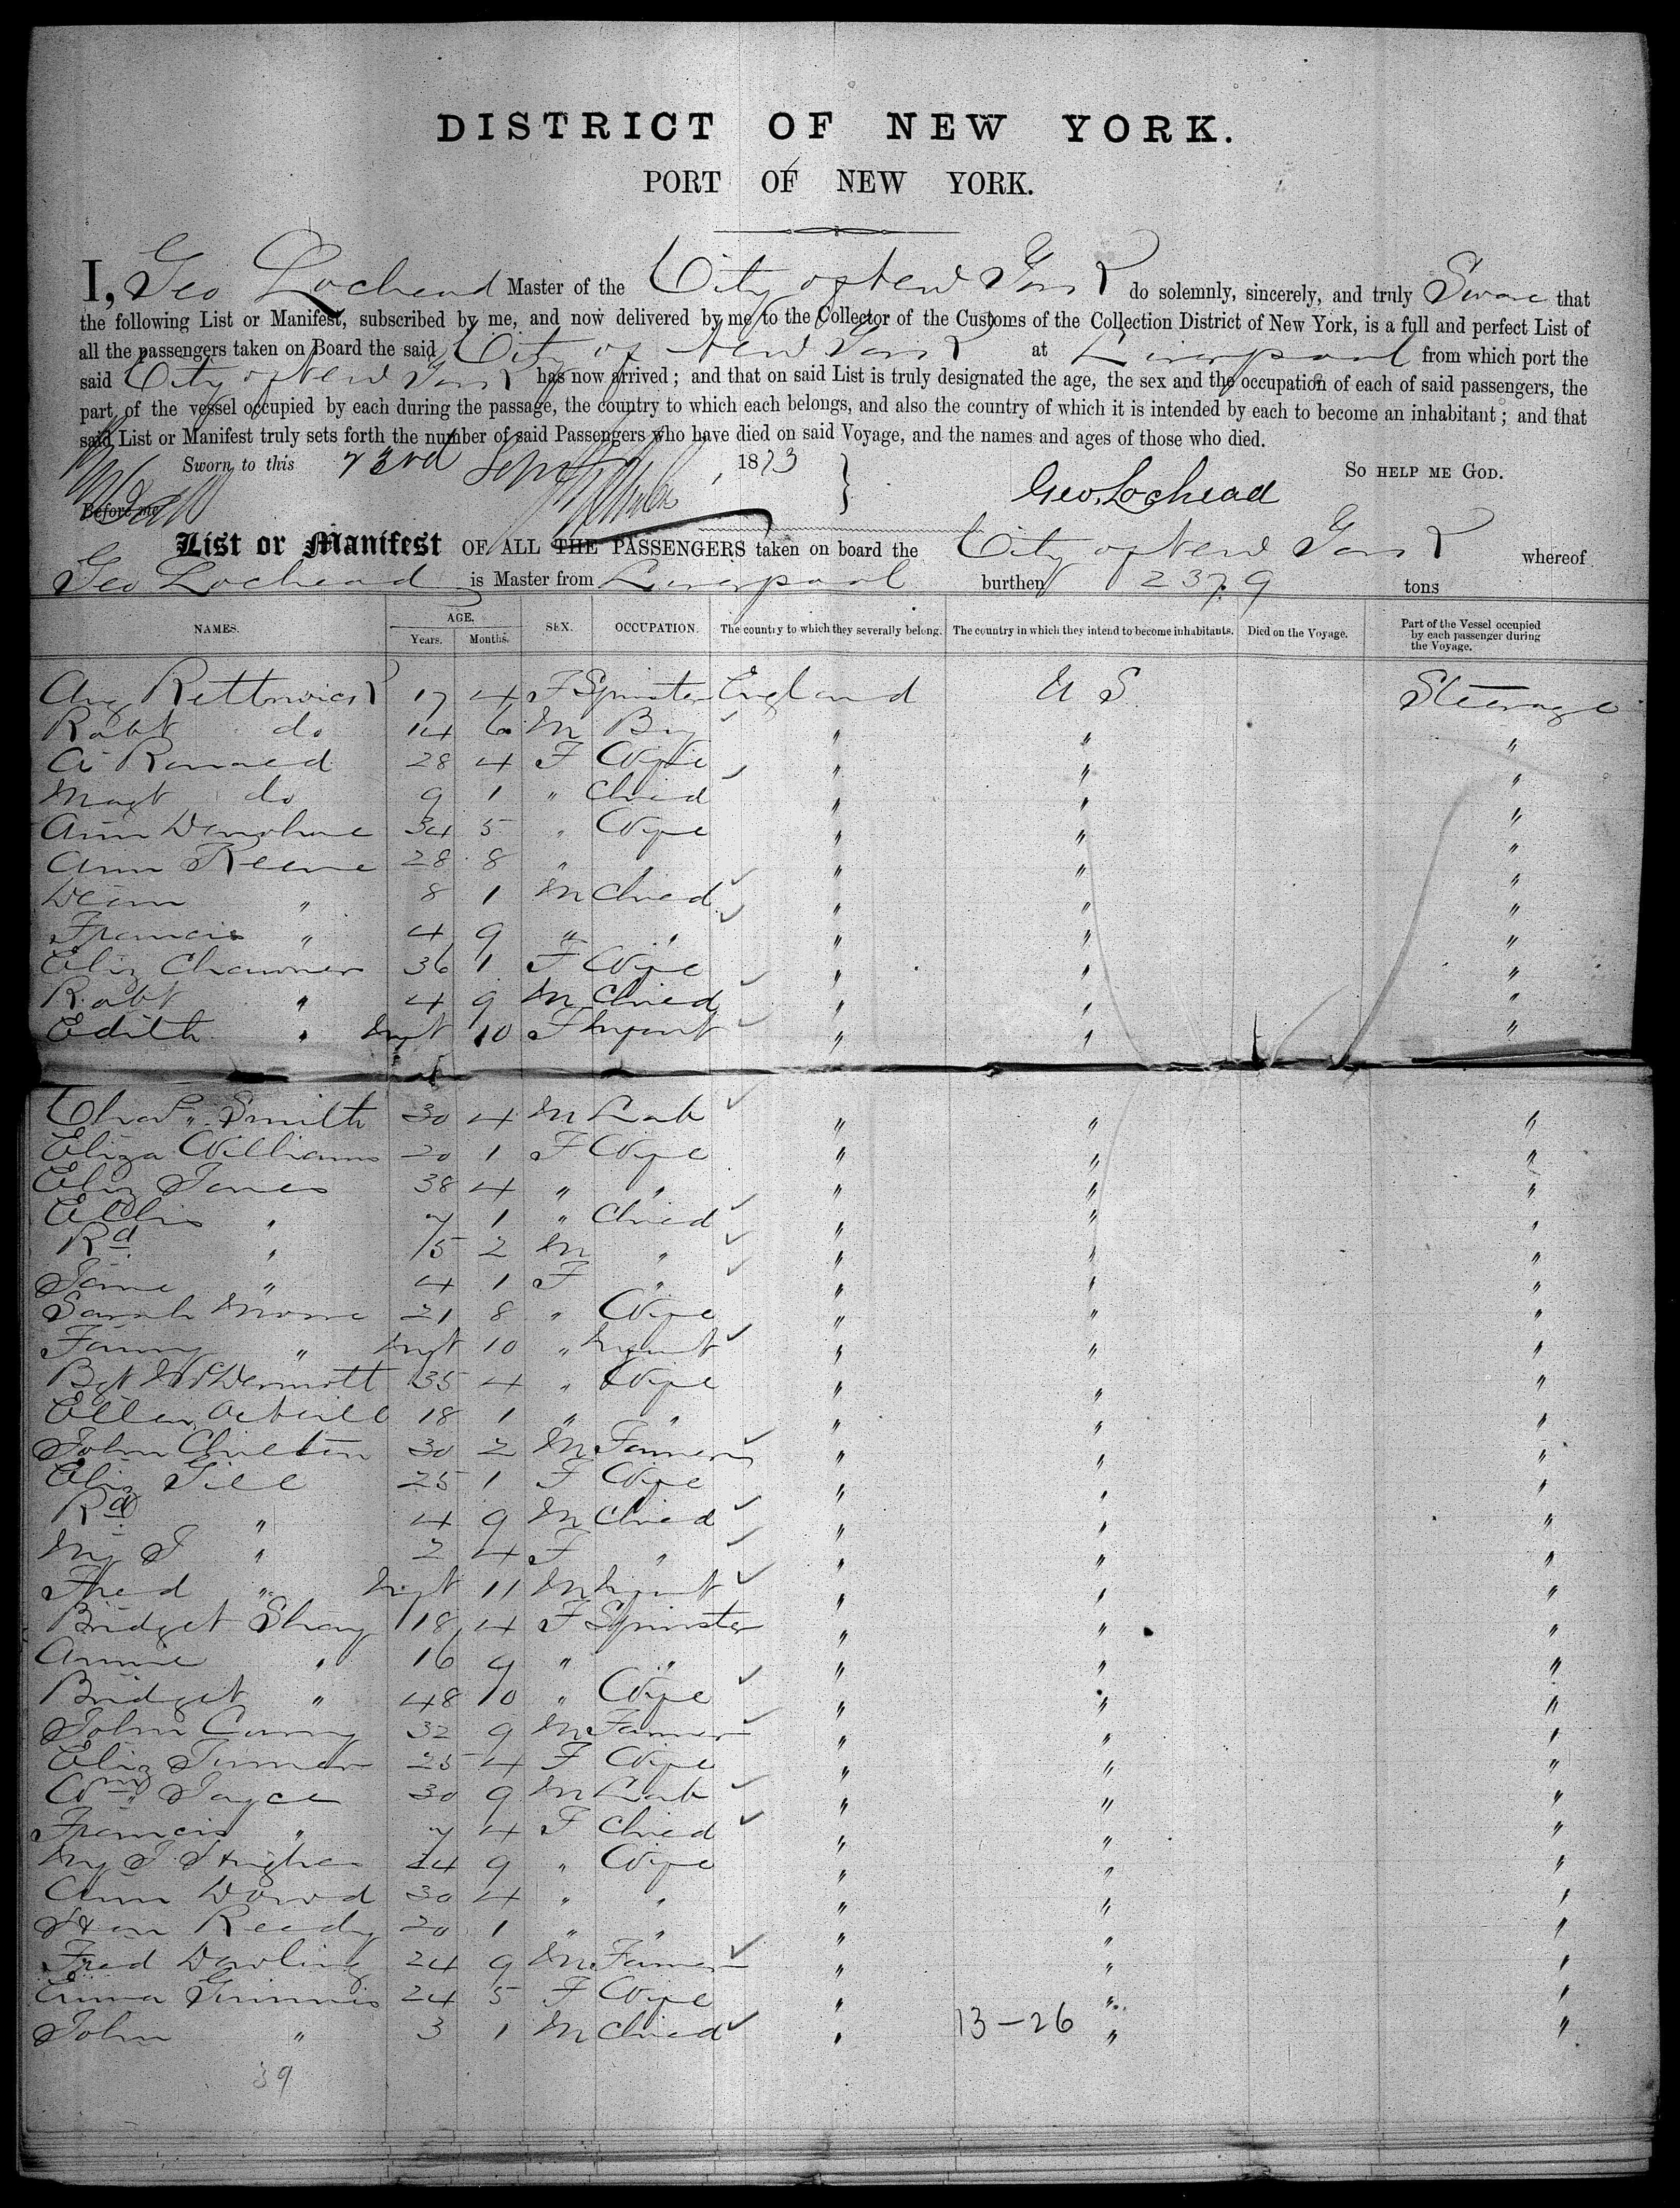 DISTRICT OF NEW YORK.
PORT OF NEW YORK.
I, Geo Lochead Master of the City of New York do solemnly, sincerely, and truly Swear that
the following List or Manifest, subscribed by me, and now delivered by me to the Collector of the Customs of the Collection District of New York, is a full and perfect List of
all the passengers taken on Board the said City of New York at Liverpool from which port the
said City of New York has now arrived; and that on said List is truly designated the age, the sex and the occupation of each of said passengers, the
part of the vessel occupied by each during the passage, the country to which each belongs, and also the country of which it is intended by each to become an inhabitant; and that
said List or Manifest truly sets forth the number of said Passengers who have died on said Voyage, and the names and ages of those who died.
Sworn to this 23rd Sept, 1873 SO HELP ME GOD.
Before me Geo. Lochead
List or Manifest OF ALL THE PASSENGERS taken on board the City of New York whereof
Geo Lochead is Master from Liverpool burthen 2379 tons
NAMES. AGE. Years. Months. SEX. OCCUPATION. The country to which they severally belong. The country in which they intend to become inhabitants. Died on the Voyage. Part of the Vessel occupied by each passenger during the Voyage.
17 4 F Spinster England U S Steerage
Robt do 14 6 M Boy " " "
A Ronaed 28 4 F Wife " " "
Magt do 9 1 " Child " " "
Ann 34 5 " Wife " " "
Ann Keene 28 8 " " " "
8 1 M Child " " "
Francis " 4 9 " " " " "
Eliz Chawner 36 1 F Wife " " "
Robt " 4 9 M Child " " "
Edith " Inft 10 F Infant " " "
Chas Smith 30 4 M Lab " " "
Eliza Williams 20 1 F Wife " " "
Eliz Jones 38 4 " " " " "
" 7 1 " Child " " "
Rd " 5 2 M " " " "
Jane " 4 1 F " " " "
Sarah Moore 21 8 " Wife " " "
Fanny " Inft 10 " Infant " " "
Bgt McDermott 35 4 " Wife " " "
Ellen 18 1 " " " " "
John Chilton 30 2 M Farmer " " "
Eliz Gill 25 1 F Wife " " "
Rd " 4 9 M Child " " "
My J " 2 4 F " " " "
Fred " Inft 11 M Infant " " "
Bridget Shay 18 4 F Spinster " " "
Annie " 16 9 " " " " "
Bridget " 48 10 " Wife " " "
John 32 9 M Farmer " " "
Eliz Turner 25 4 F Wife " " "
Wm Joyce 30 9 M Lab " " "
Francis " 7 4 F Child " " "
My J Hughes 24 9 " Wife " " "
Ann Dowd 30 4 " " " " "
Hon Reedy 20 1 " " " " "
Fred Dowling 24 9 M Farmer " " "
Emma 24 5 F Wife " " "
John " 3 1 M Child " 13-26 " "
39